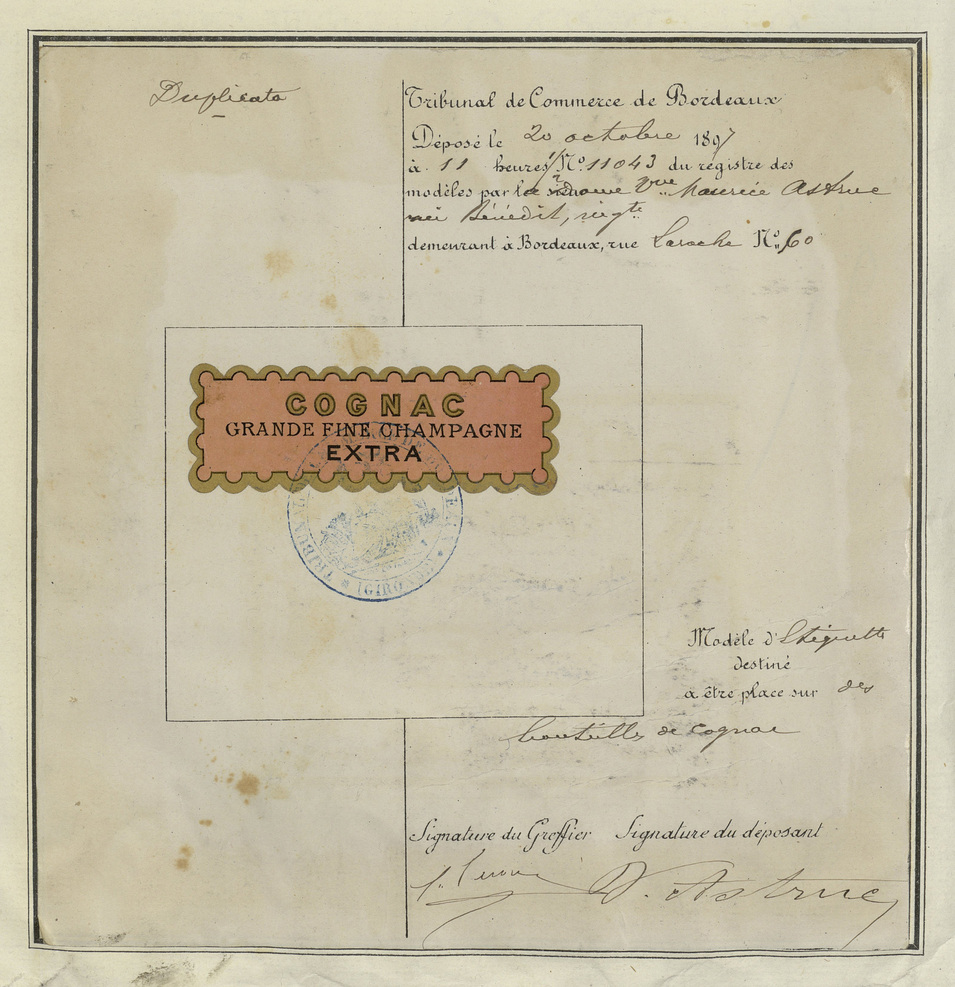 Duplicata
Tribunal de Commerce de Bordeaux
Déposé le 20 octobre 1897
à 11 heures No. 11043 du registre des
modèles par la dame Vve Maurice Astruc
née Bénédit, négte
demeurant à Bordeaux, rue Laroche No. 60
COGNAC
GRANDE FINE CHAMPAGNE
EXTRA
TRIBUNAL (GIRONDE)
Modèle d'Etiquette
destiné
à être place sur des
bouteilles de cognac
Signature du Greffier Signature du déposant
V. Astruc